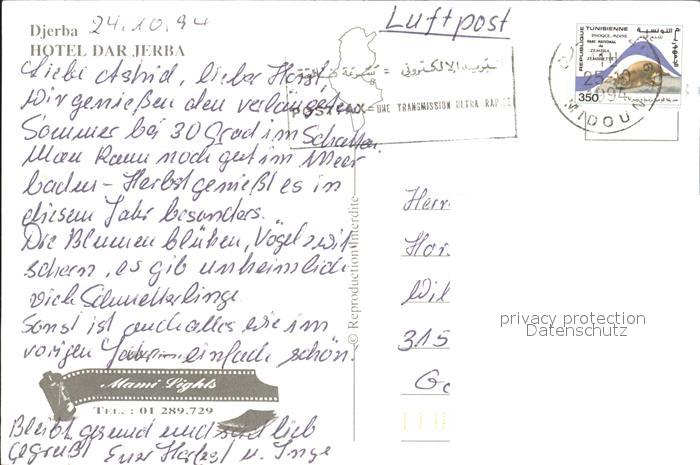 Djerba 24.10.94
HOTEL DAR JERBA
Luftpost
Liebe Astrid, lieber Horst,
Wir genießen den verlängerten
Sommer bei 30 Grad im Schatten.
Man kann noch gut im Meer
baden - Herbst genießt es in
diesem Jahr besonders.
Die Blumen blühen, Vögel zwit-
schern, es gib unheimlich
viele Schmetterlinge
Sonst ist auch alles wie im
vorigen Jahr einfach schön.
Mami Lights
TEL. : 01 289.729
Bleibt gesund und seid lieb
gegrüßt Eure Herbst u. Inge
© Reproduction Interdite
البريد الإلكتروني = سرعة
POSTFAX = UNE TRANSMISSION ULTRA RAPIDE
REPUBLIQUE TUNISIENNE
PHOQUE-MOINE
PARC NATIONAL
de
ZEMBRA
et
ZEMBRETTA
350
25-10
1994
MIDOUN
Herr
Hor
Wil
315
privacy protection
Datenschutz